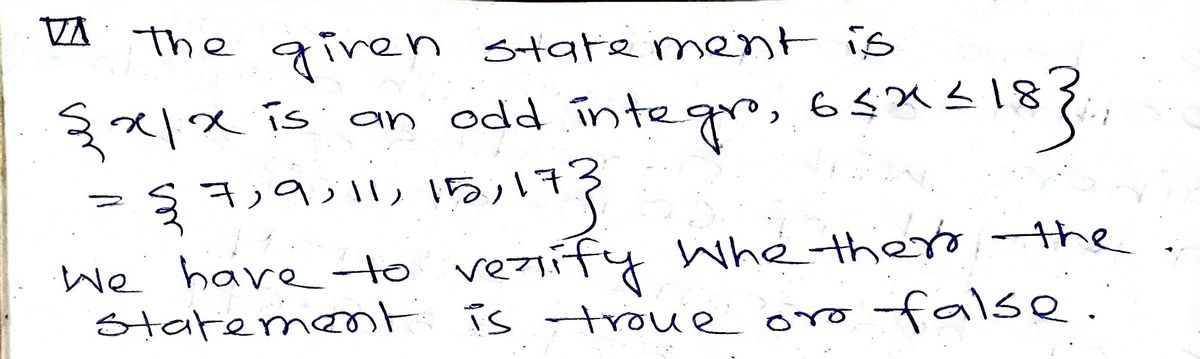 VI The given statement is
{x/x is an odd integr, 6 ≤ x ≤ 18}
= {7, 9, 11, 15, 17}
We have to verify Whether the
statement is true or false.